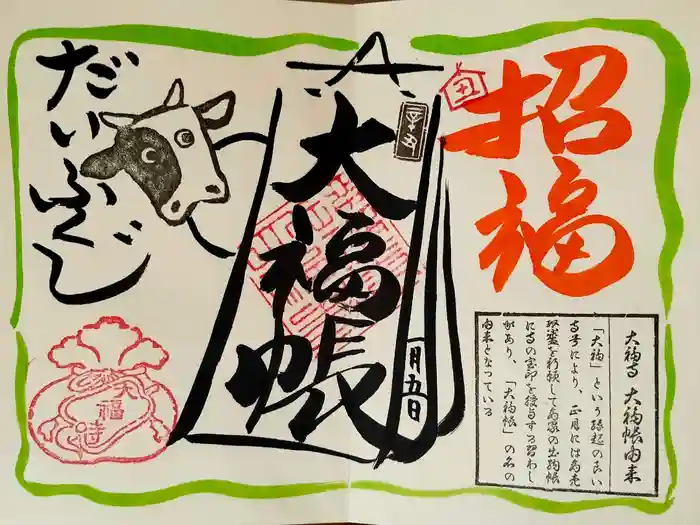 招福
丑
大福帳
一月五日
だいふくじ
大福
大福寺 大福帳由来
「大福」という縁起の良い
寺号により、正月には商売
繁盛を祈願して商家の出納帳
に寺の宝印を授与する習わし
があり、「大福帳」の名の
由来となっている